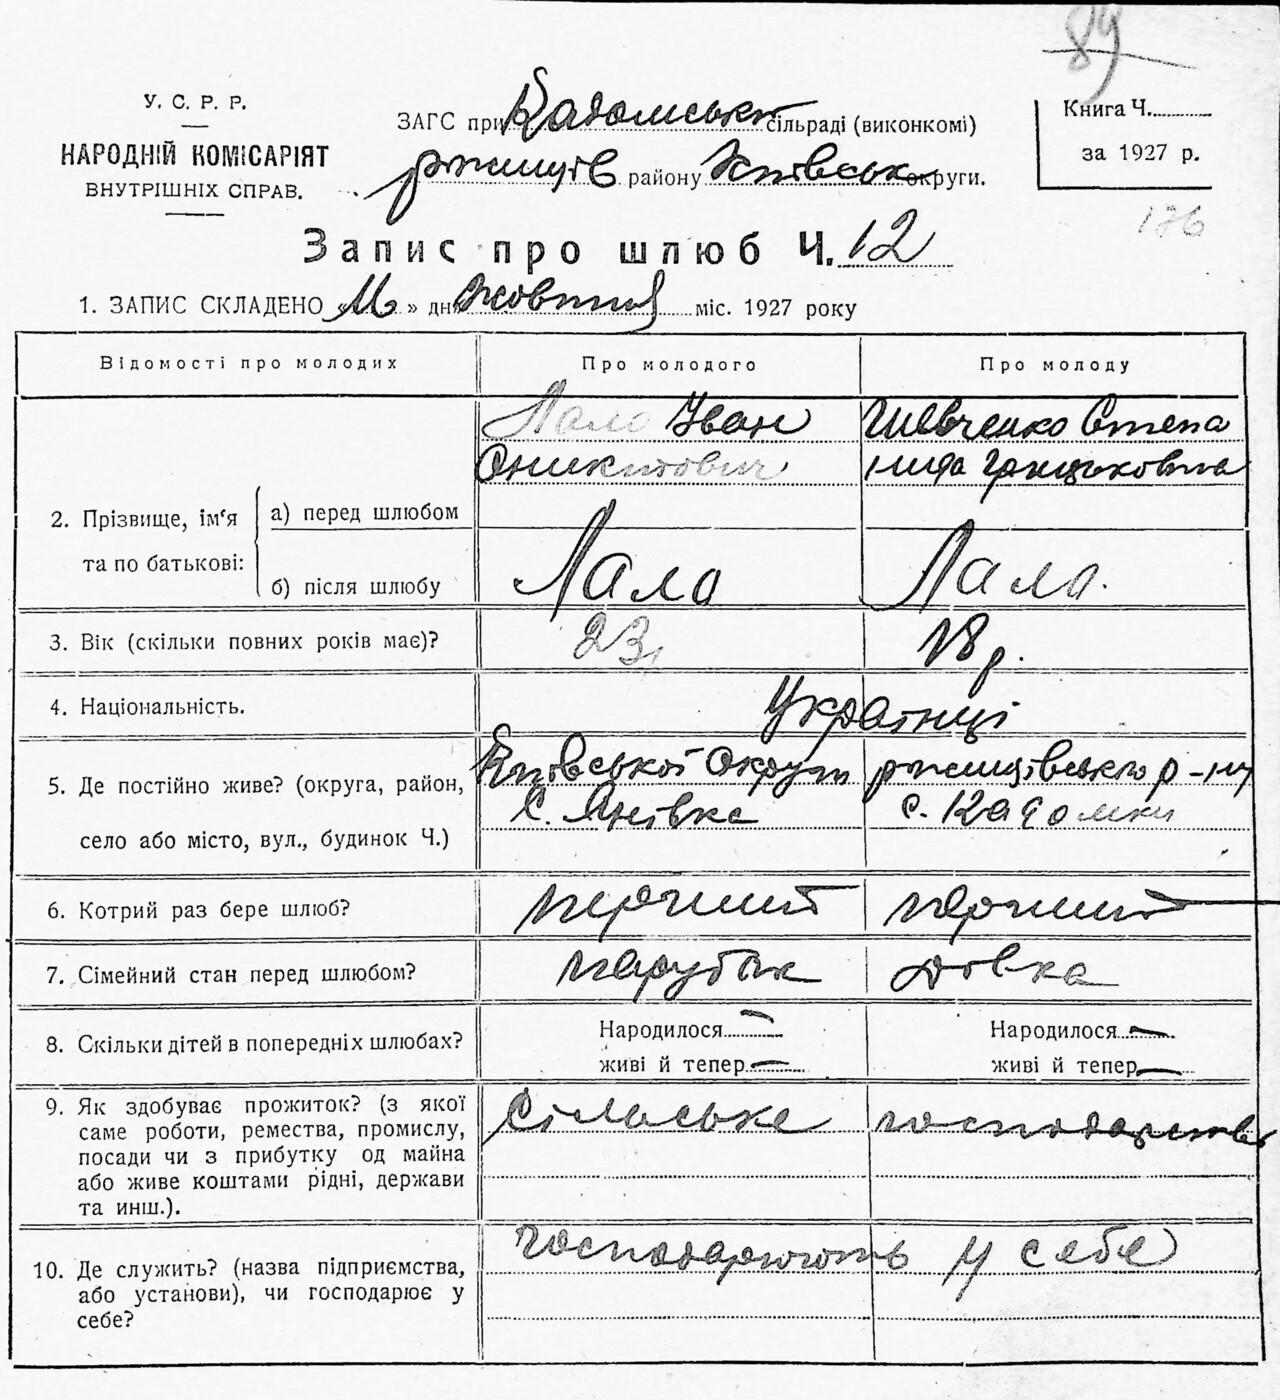 89
У. С. Р. Р.
НАРОДНІЙ КОМІСАРІЯТ
ВНУТРІШНІХ СПРАВ.
ЗАГС при Кадомській сільраді (виконкомі)
району Київської округи.
Книга Ч.
за 1927 р.
176
Запис про шлюб Ч. 12
1. ЗАПИС СКЛАДЕНО « » дня Жовтня міс. 1927 року
Відомості про молодих Про молодого Про молоду
Лало Іван Шевченко Степа
Оникитович нида Грицьковна
2. Прізвище, ім‘я та по батькові:
а) перед шлюбом
б) після шлюбу Лало Лало.
3. Вік (скільки повних років має)? 23 18 р.
4. Національність. Українці
5. Де постійно живе? (округа, район, Київської Округи ржищівського р-ну
село або місто, вул., будинок Ч.) С. Янівка с. Кадомки
6. Котрий раз бере шлюб? перший перший
7. Сімейний стан перед шлюбом? парубок дівка
8. Скільки дітей в попередніх шлюбах? Народилося — Народилося —
живі й тепер — живі й тепер —
9. Як здобуває прожиток? (з якої Сільське господарство
саме роботи, ремества, промислу,
посади чи з прибутку од майна
або живе коштами рідні, держави
та инш.).
10. Де служить? (назва підприємства, господарюють у себе
або установи), чи господарює у
себе?